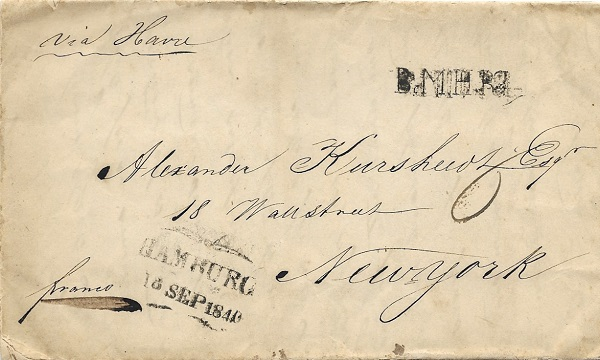 via Havre
Alexander Kursheedt Esqr
18 Wallstreet
New York
franco
HAMBURG
18 SEP 1840